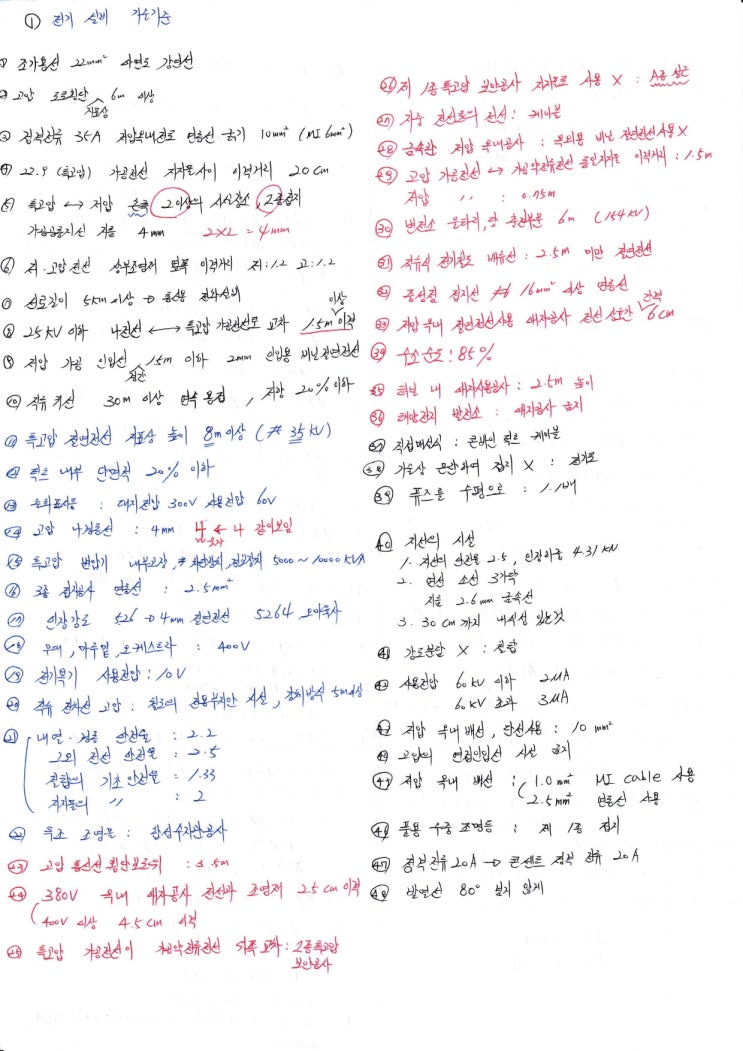 ① 전기 설비 기술기준
① 조가용선 22mm² 아연도 강연선
② 고압 도로횡단 6m 이상
지표상
③ 정격전류 35A 저압옥내전로 연동선 굵기 10mm² (MI 6mm²)
④ 22.9 (특고압) 가공전선 지지물사이 이격거리 20cm
⑤ 특고압 ↔ 저압 2이상의 시설장소, 2종접지
가공공동지선 지름 4mm 2×2 = 4mm
⑥ 저·고압전선 상부조영재 이격거리 저:1.2 고:1.2
⑦ 선로길이 5km 이상 → 통신용 전화설비
이상
⑧ 25kV 이하 나전선 ↔ 특고압 가공전선로 교차 1.5m 이격
⑨ 저압 가공 인입선 15m 이하 2mm 인입용 비닐절연전선
경간
⑩ 직류 귀선 30m 이상 연속 용접, 저항 20% 이하
⑪ 특고압 절연전선 지표상 높이 8m 이상 (≠ 35kV)
⑫ 덕트 내부 단면적 20% 이하
⑬ 출퇴표시등 : 대지전압 300V 사용전압 60V
⑭ 고압 나경동선 : 4mm 4 ← 4 같이보임
⑮ 특고압 변압기 내부고장, 차단장치, 경고장치 5000 ~ 10000 kVA
⑯ 3종 접지공사 연동선 : 2.5mm²
⑰ 인장강도 526 → 4mm 절연전선 5264
⑱ 무대, 마루밑, 오케스트라 : 400V
⑲ 전기욕기 사용전압 : 10V
⑳ 직류 전차선 고압 : 전용부지안 시설, 강체방식 5m이상
㉑ 내열·경동 안전율 : 2.2
그외 전선 안전율 : 2.5
철탑의 기초안전율 : 1.33
지지물의 〃 : 2
㉒ 옥측 조명용 : 합성수지관공사
㉓ 고압 통신선 횡단보도위 : 3.5m
㉔ 380V 옥내 애자공사 전선과 조영재 2.5cm 이격
400V 이상 4.5cm 이격
㉕ 특고압 가공전선이 가공약전류전선 교차 : 2종특고압
보안공사
㉖ 제 1종 특고압 보안공사 지지물로 사용 X : A종 철근
㉗ 지중 전선로의 전선 : 케이블
㉘ 금속관 저압 옥내공사 : 옥외용 비닐 절연전선사용X
㉙ 고압 가공전선 ↔ 가공약전류전선 동일지지물 이격거리 : 1.5m
저압 〃 : 0.75m
㉚ 발전소 울타리, 담 충전부분 6m (154kV)
㉛ 직류식 전기철도 배류선 : 2.5m 미만 절연전선
㉜ 중성점 접지선 16mm² 이상 연동선
㉝ 저압 옥내 절연전선사용 애자공사 전선 상호간 간격 6cm
㉞ 수소 순도 : 85%
㉟ 터널 내 애자사용공사 : 2.5m 높이
㊱ 태양전지 발전소 : 애자공사 금지
㊲ 직접매설식 : 콤바인 덕트 케이블
㊳ 기술상 곤란하여 접지 X : 전기로
㊴ 퓨즈를 수평으로 : 1.1배
㊵ 지선의 시설
1. 지선의 안전율 2.5, 인장하중 4.31 kN
2. 연선 소선 3가닥
지름 2.6mm 금속선
3. 30cm까지 내식성 있는것
㊶ 강도분담 X : 철탑
㊷ 사용전압 60kV 이하 2μA
60kV 초과 3μA
㊸ 저압 옥내 배선, 단선사용 : 10mm²
㊹ 고압의 연접인입선 시설 금지
㊺ 저압 옥내 배선 : 1.0mm² MI cable 사용
2.5mm² 연동선 사용
㊻ 풀용 수중 조명등 : 제 1종 접지
㊼ 정격전류 20A → 콘센트 정격 전류 20A
㊽ 발열선 80° 넘지 않게